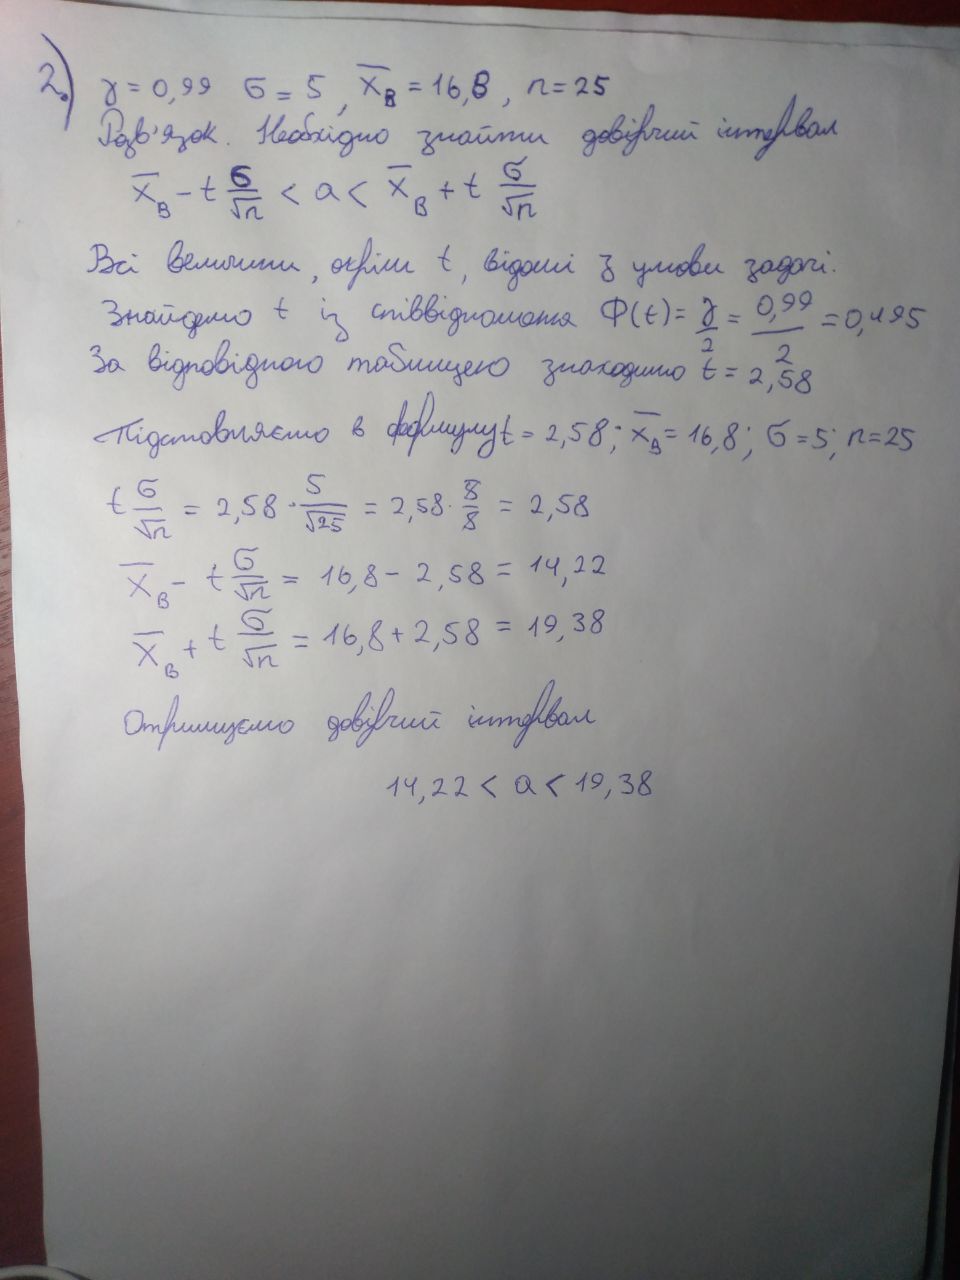 2.) γ = 0,99 σ = 5, x̄_В = 16,8, n = 25
Розв'язок. Необхідно знайти довірчий інтервал
x̄_В − t σ/√n < a < x̄_В + t σ/√n
Всі величини, окрім t, відомі з умови задачі.
Знайдемо t із співвідношення Ф(t) = γ/2 = 0,99/2 = 0,495
За відповідною таблицею знаходимо t = 2,58
Підставляємо в формулу t = 2,58; x̄_В = 16,8; σ = 5; n = 25
t σ/√n = 2,58 · 5/√25 = 2,58 · 5/5 = 2,58
x̄_В − t σ/√n = 16,8 − 2,58 = 14,22
x̄_В + t σ/√n = 16,8 + 2,58 = 19,38
Отримуємо довірчий інтервал
14,22 < a < 19,38